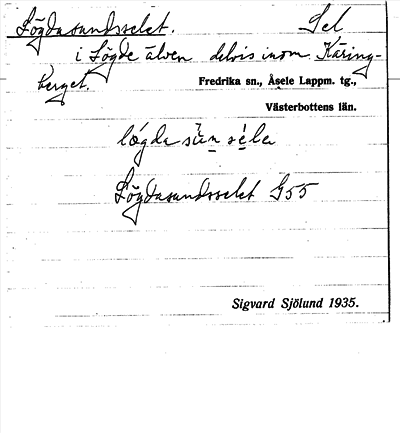 Lögdasundsselet. Sel
i Lögde älven delvis inom Käring-
berget. Fredrika sn., Åsele Lappm. tg.,
Västerbottens län.
Lögdasundsselet G55
Sigvard Sjölund 1935.